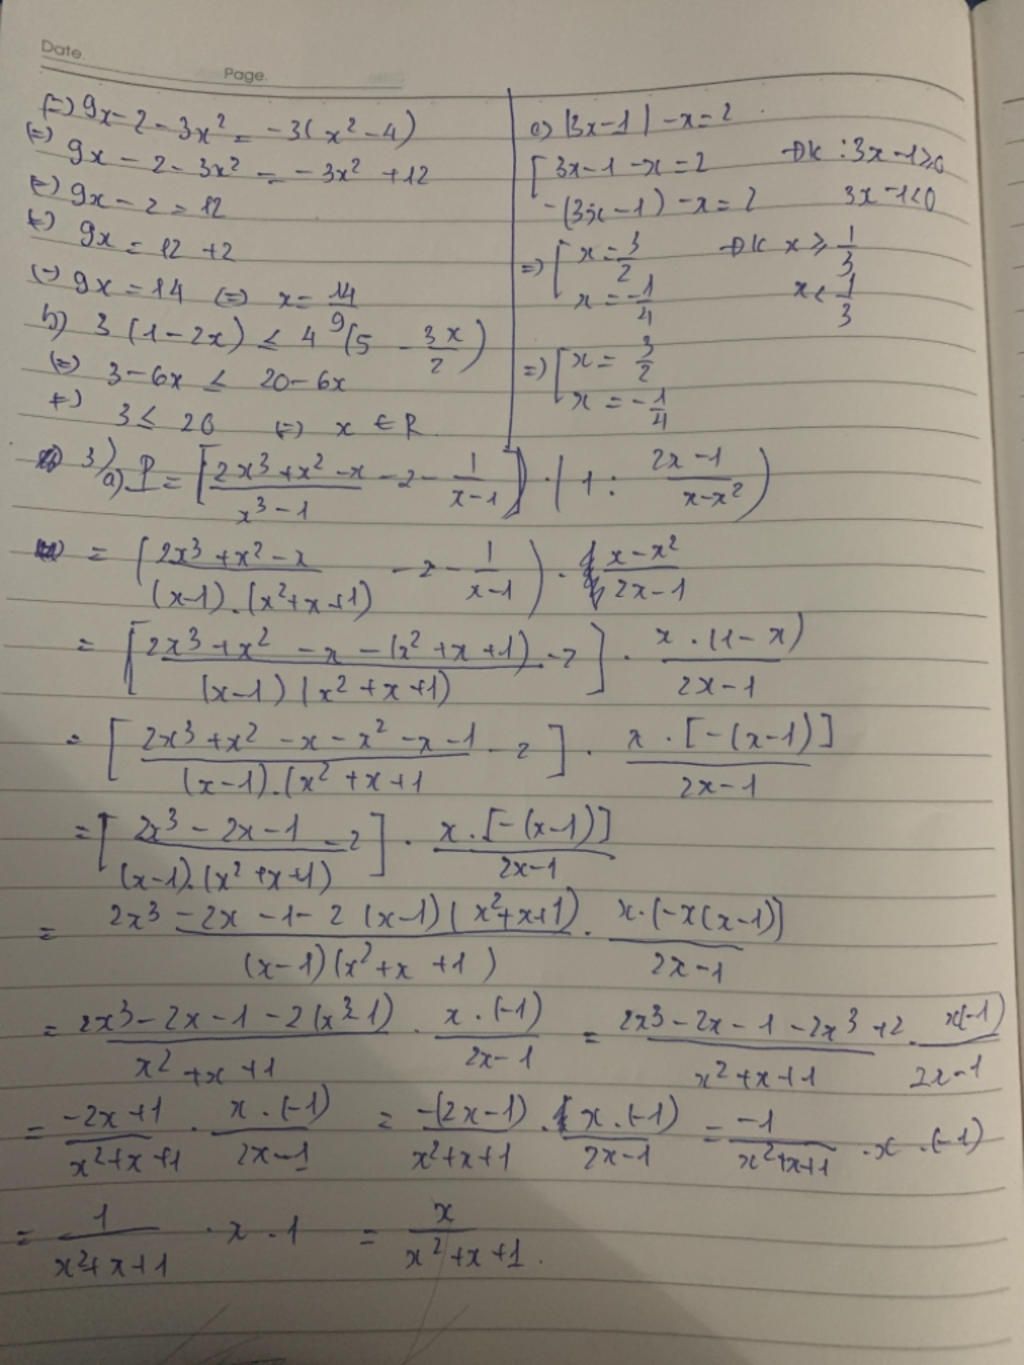 Date.
Page.
(=) 9x - 2 - 3x² = -3(x² - 4)
(=) 9x - 2 - 3x² = -3x² + 12
(=) 9x - 2 = 12
(=) 9x = 12 + 2
(=) 9x = 14 (=) x = 14/9
b) 3(1 - 2x) ≤ 4(5 - 3x/2)
(=) 3 - 6x ≤ 20 - 6x
(=) 3 ≤ 20 (=) x ∈ R
c) |3x - 1| - x = 2
[ 3x - 1 - x = 2 ĐK : 3x - 1 ≥ 0
-(3x - 1) - x = 2 3x - 1 < 0
=) [ x = 3/2 ĐK x ≥ 1/3
x = -1/4 x < 1/3
=) [ x = 3/2
x = -1/4
3) a) P = [(2x³ + x² - x)/(x³ - 1) - 2 - 1/(x - 1)] . (1 : (2x - 1)/(x - x²))
= ((2x³ + x² - x)/((x - 1).(x² + x + 1)) - 2 - 1/(x - 1)) . (x - x²)/(2x - 1)
= [(2x³ + x² - x - (x² + x + 1))/((x - 1)(x² + x + 1)) - 2] . (x . (1 - x))/(2x - 1)
= [(2x³ + x² - x - x² - x - 1)/((x - 1).(x² + x + 1) - 2] . (x . [-(x - 1)])/(2x - 1)
= [(2x³ - 2x - 1)/((x - 1).(x² + x + 1)) - 2] . (x . [-(x - 1)])/(2x - 1)
= (2x³ - 2x - 1 - 2(x - 1)(x² + x + 1))/((x - 1)(x² + x + 1)) . (x . (-x(x - 1)])/(2x - 1)
= (2x³ - 2x - 1 - 2(x³ - 1))/(x² + x + 1) . (x . (-1))/(2x - 1) = (2x³ - 2x - 1 - 2x³ + 2)/(x² + x + 1) . (x(-1))/(2x - 1)
= (-2x + 1)/(x² + x + 1) . (x . (-1))/(2x - 1) = (-(2x - 1))/(x² + x + 1) . (x . (-1))/(2x - 1) = -1/(x² + x + 1) . x . (-1)
= 1/(x² + x + 1) . x . 1 = x/(x² + x + 1) .